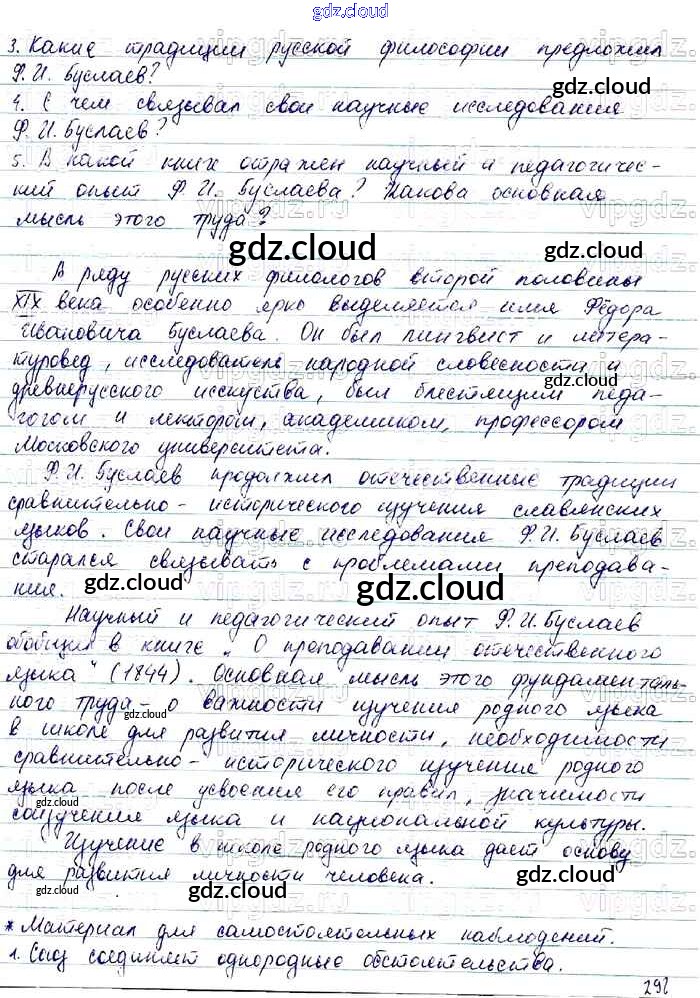 gdz.cloud
3. Какие традиции русской философии предложил
Ф. И. Буслаев?
gdz.cloud
4. С чем связывал свои научные исследования
Ф. И. Буслаев?
gdz.cloud
5. В какой книге отражен научный и педагогичес-
кий опыт Ф. И. Буслаева? Какова основная
мысль этого труда?
gdz.cloud
gdz.cloud
В ряду русских филологов второй половины
XIX века особенно ярко выделяется имя Фёдора
Ивановича Буслаева. Он был лингвист и литера-
туровед, исследователь народной словесности и
gdz.cloud
древнерусского исскуства, был блестящим педа-
гогом и лектором, академиком, профессором
Московского университета.
Ф. И. Буслаев продолжил отечественные традиции
сравнительно - исторического изучения славянских
языков. Свои научные исследования Ф. И. Буслаев
старался связывать с проблемами преподава-
ния.
gdz.cloud
gdz.cloud
Научный и педагогический опыт Ф. И. Буслаев
обобщил в книге „О преподавании отечественного
языка" (1844). Основная мысль этого фундаменталь-
ного труда - о важности изучения родного языка
gdz.cloud
в школе для развития личности, необходимости
сравнительно - исторического изучения родного
языка после усвоения его правил, значимости
gdz.cloud
соизучения языка и национальной культуры.
Изучение в школе родного языка дает основу
для развития личности человека.
gdz.cloud
gdz.cloud
gdz.cloud
* Материал для самостоятельных наблюдений.
1. Союз соединяет однородные обстоятельства.
292